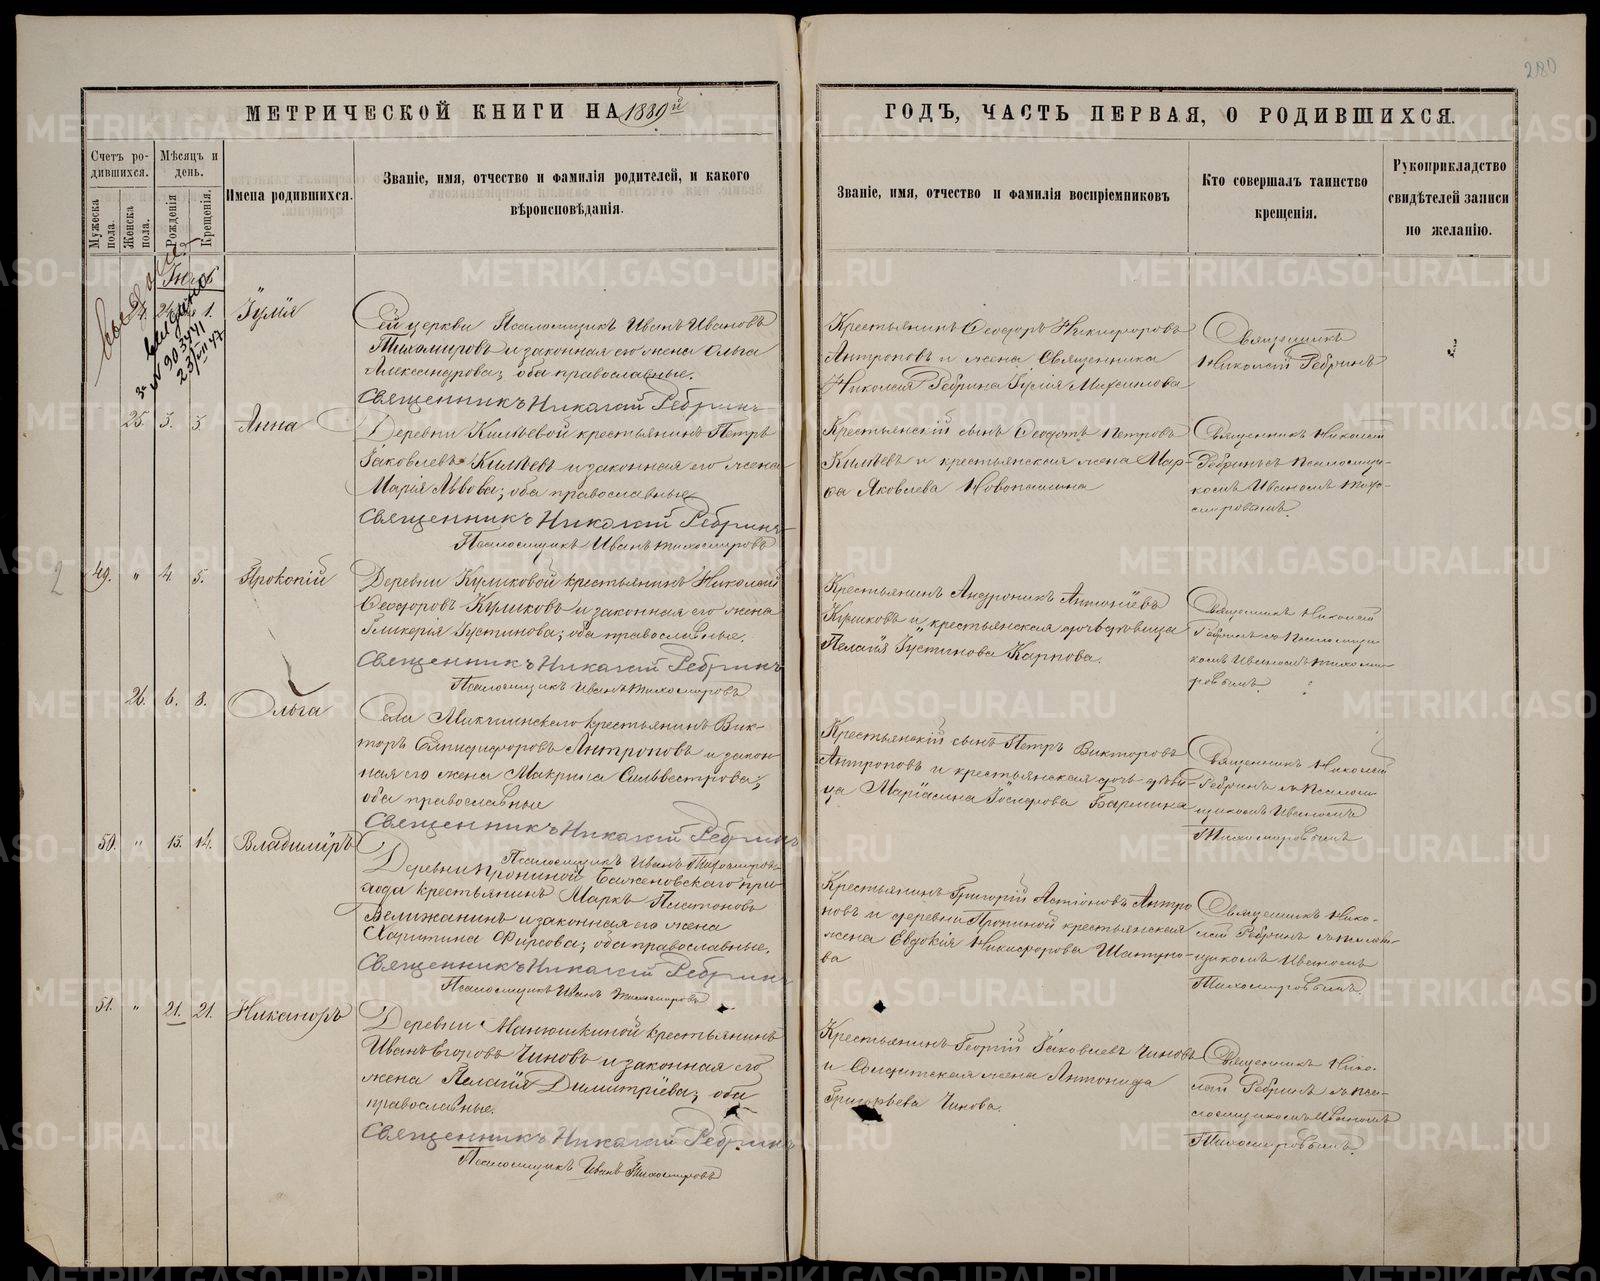 280
МЕТРИЧЕСКОЙ КНИГИ НА 1889й
ГОДЪ, ЧАСТЬ ПЕРВАЯ, О РОДИВШИХСЯ.
Счетъ ро-
дившихся.
Мѣсяцъ и
день.
Мужеска
пола.
Женска
пола.
Рожденія
Крещенія.
Имена родившихся.
Званіе, имя, отчество и фамилія родителей, и какого
вѣроисповѣданія.
Званіе, имя, отчество и фамилія воспріемниковъ
Кто совершалъ таинство
крещенія.
Рукоприкладство
свидѣтелей записи
по желанію.
1. Іулія
Сей церкви Псаломщикъ Иванъ Ивановъ
Тихомировъ и законная его жена Ольга
Александрова; оба православные.
Священникъ Николай Ребринъ
Крестьянинъ Ѳеодоръ Никифоровъ
Антроповъ и жена Священника
Николая Ребрина Іулія Михаилова
Священникъ
Николай Ребринъ
25. 3. 3. Анна
Деревни Килѣевой крестьянинъ Петръ
Іаковлевъ Килѣевъ и законная его жена
Марія Львова; оба православные
Священникъ Николай Ребринъ
Псаломщикъ Иванъ Тихомировъ
Крестьянскій сынъ Ѳеодотъ Петровъ
Килѣевъ и крестьянская жена Мар-
ѳа Яковлева Новопашина
Священникъ Николай
Ребринъ съ псаломщи-
комъ Иваномъ Тихо-
мировымъ.
2
49. " 4. 5. Прокопій
Деревни Куликовой крестьянинъ Николай
Ѳеодоровъ Куликовъ и законная его жена
Гликерія Іустинова; оба православные.
Священникъ Николай Ребринъ
Псаломщикъ Иванъ Тихомировъ
Крестьянинъ Андроникъ Антоніевъ
Куликовъ и крестьянская дочь дѣвица
Пелагія Іустинова Карпова.
Священникъ Николай
Ребринъ съ Псаломщи-
комъ Иваномъ Тихоми-
ровымъ.
26. 6. 8. Ольга
Села крестьянинъ Вик-
торъ Епифифоровъ Антроповъ и закон-
ная его жена Макрина Сильвестрова;
оба православные
Священникъ Николай Ребринъ
Псаломщикъ Иванъ Тихомировъ
Крестьянскій сынъ Петръ Викторовъ
Антроповъ и крестьянская дочь дѣви-
ца Маріамна Іосифова Бармина
Священникъ Николай
Ребринъ съ Псалом-
щикомъ Иваномъ
Тихомировымъ
50. " 13. 14. Владиміръ
Деревни Прониной Баженовскаго при-
хода крестьянинъ Маркъ Платоновъ
Велижанинъ и законная его жена
Харитина Фирсова; оба православные.
Священникъ Николай Ребринъ
Псаломщикъ Иванъ Тихомировъ
Крестьянинъ Григорій Антро
новъ и деревни Прониной крестьянская
жена Евдокія Никифорова Шатуно-
ва
Священникъ Нико-
лай Ребринъ съ псалом-
щикомъ Иваномъ
Тихомировымъ.
51. " 21. 21. Никаноръ
Деревни Манюшкиной крестьянинъ
Иванъ Егоровъ Чиновъ и законная его
жена Пелагія Димитріева; оба
православные.
Священникъ Николай Ребринъ
Псаломщикъ Иванъ Тихомировъ
Крестьянинъ Георгій Іаковлевъ Чиновъ
и Солдатская жена Антонида
Григорьева Чинова.
Священникъ Нико-
лай Ребринъ съ пса-
ломщикомъ Иваномъ
Тихомировымъ.
METRIKI.GASO-URAL.RU